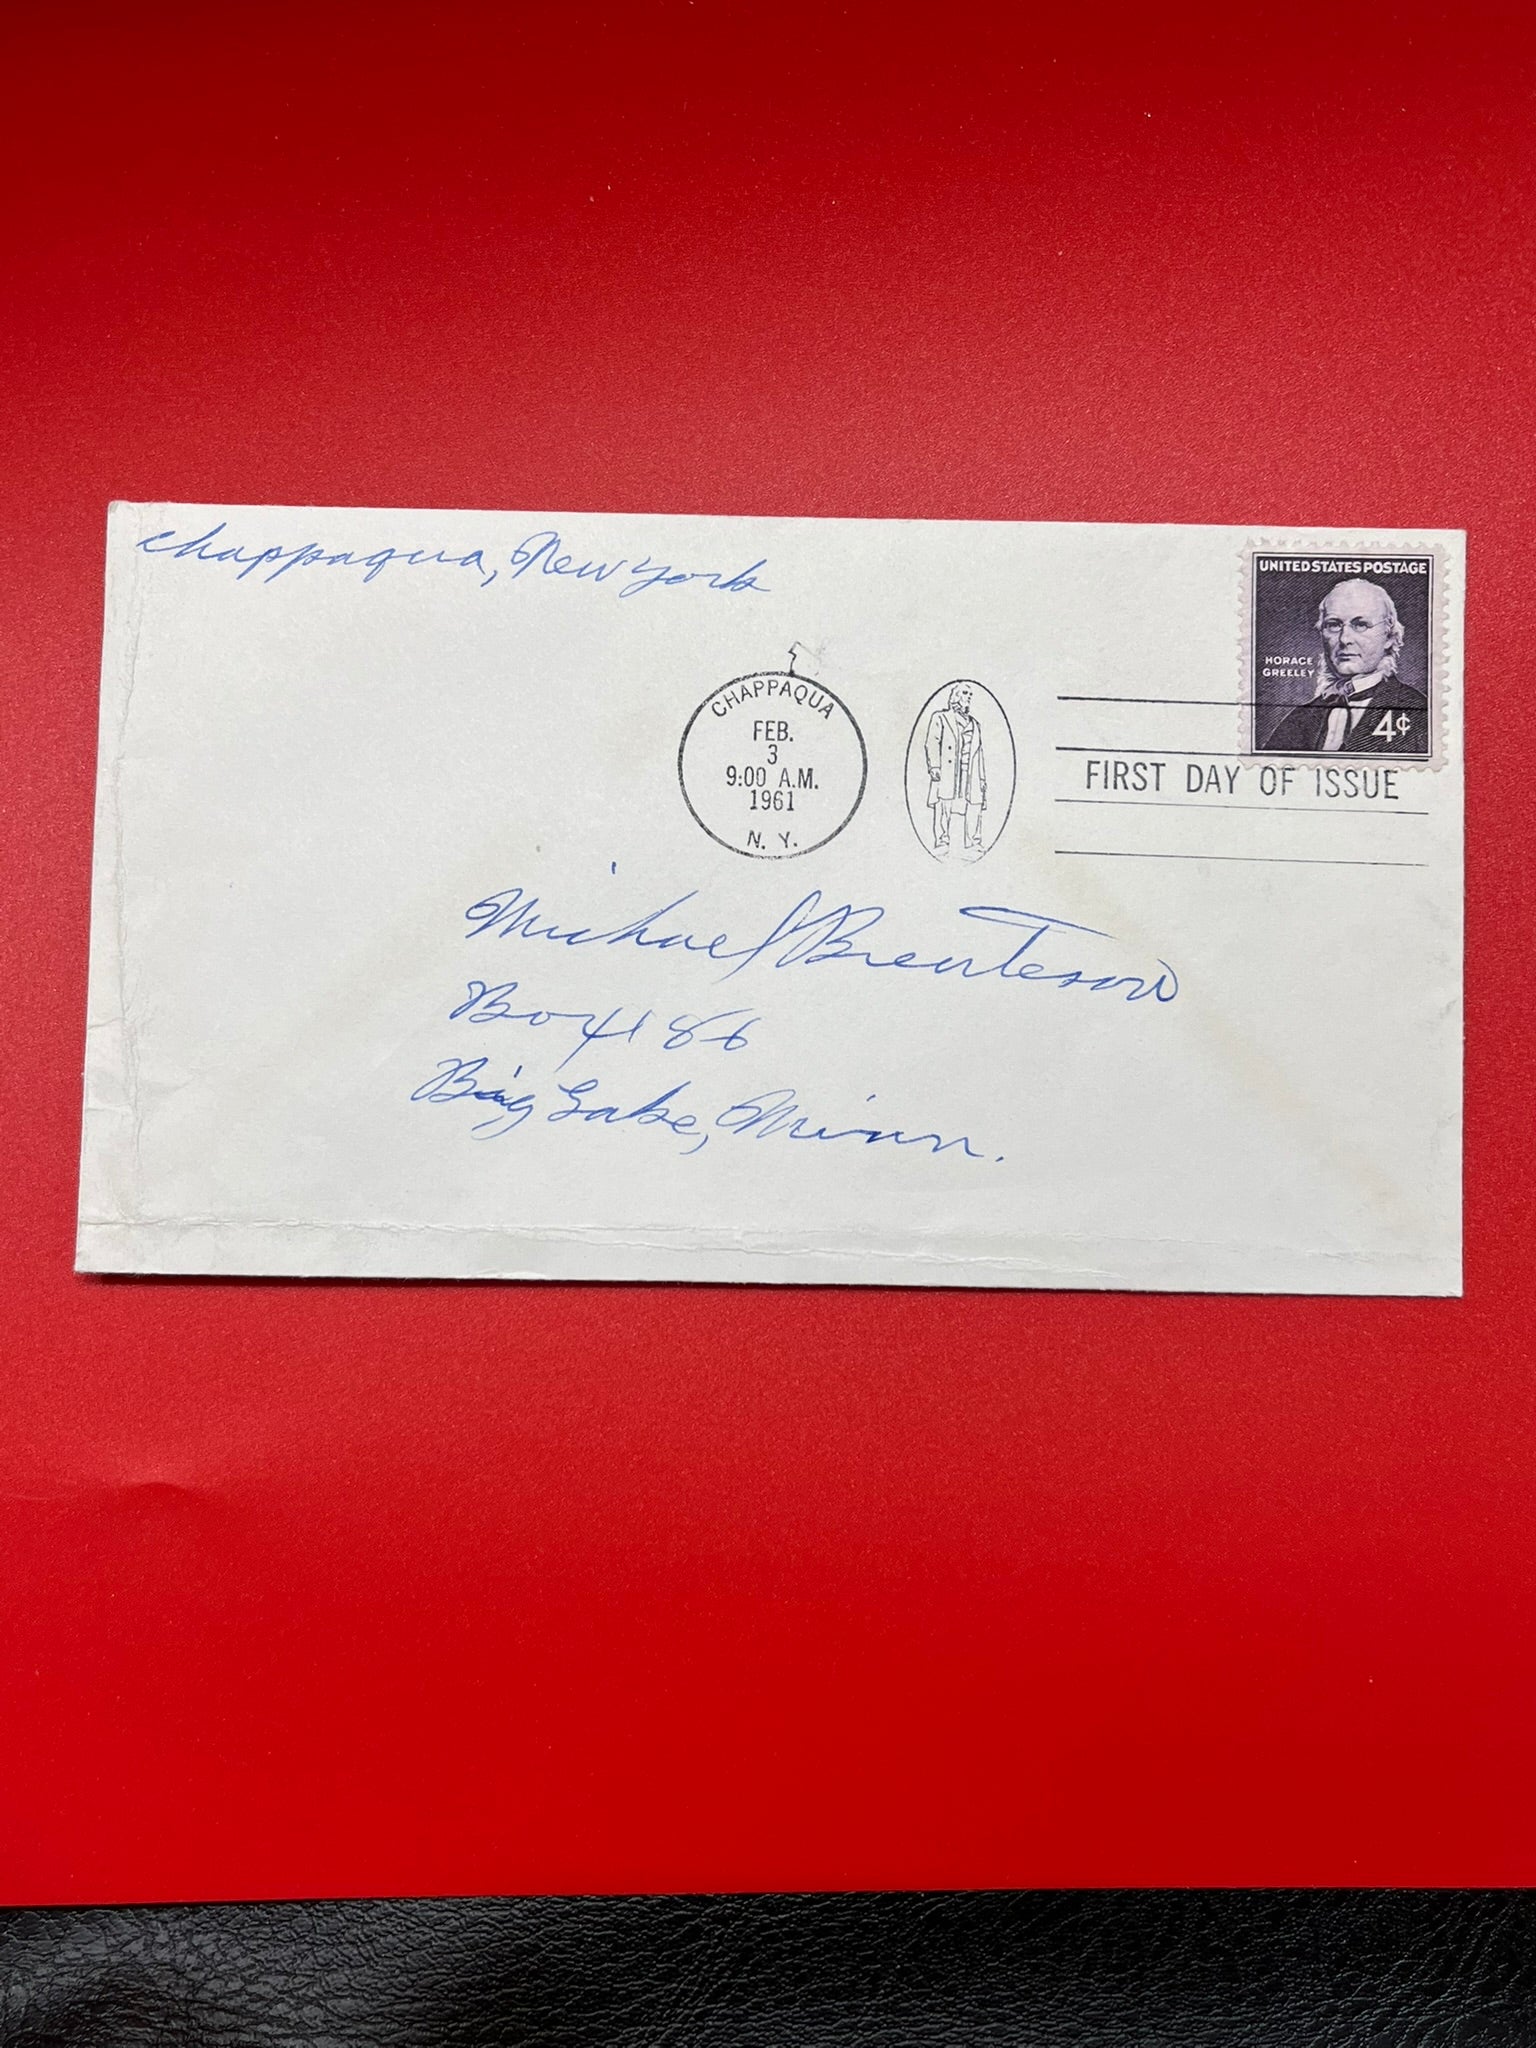 Chappaqua, New York
UNITED STATES POSTAGE
HORACE
GREELEY
4¢
CHAPPAQUA
FEB.
3
9:00 A.M.
1961
N. Y.
FIRST DAY OF ISSUE
Michael Brenteson
Box 186
Big Lake, Minn.